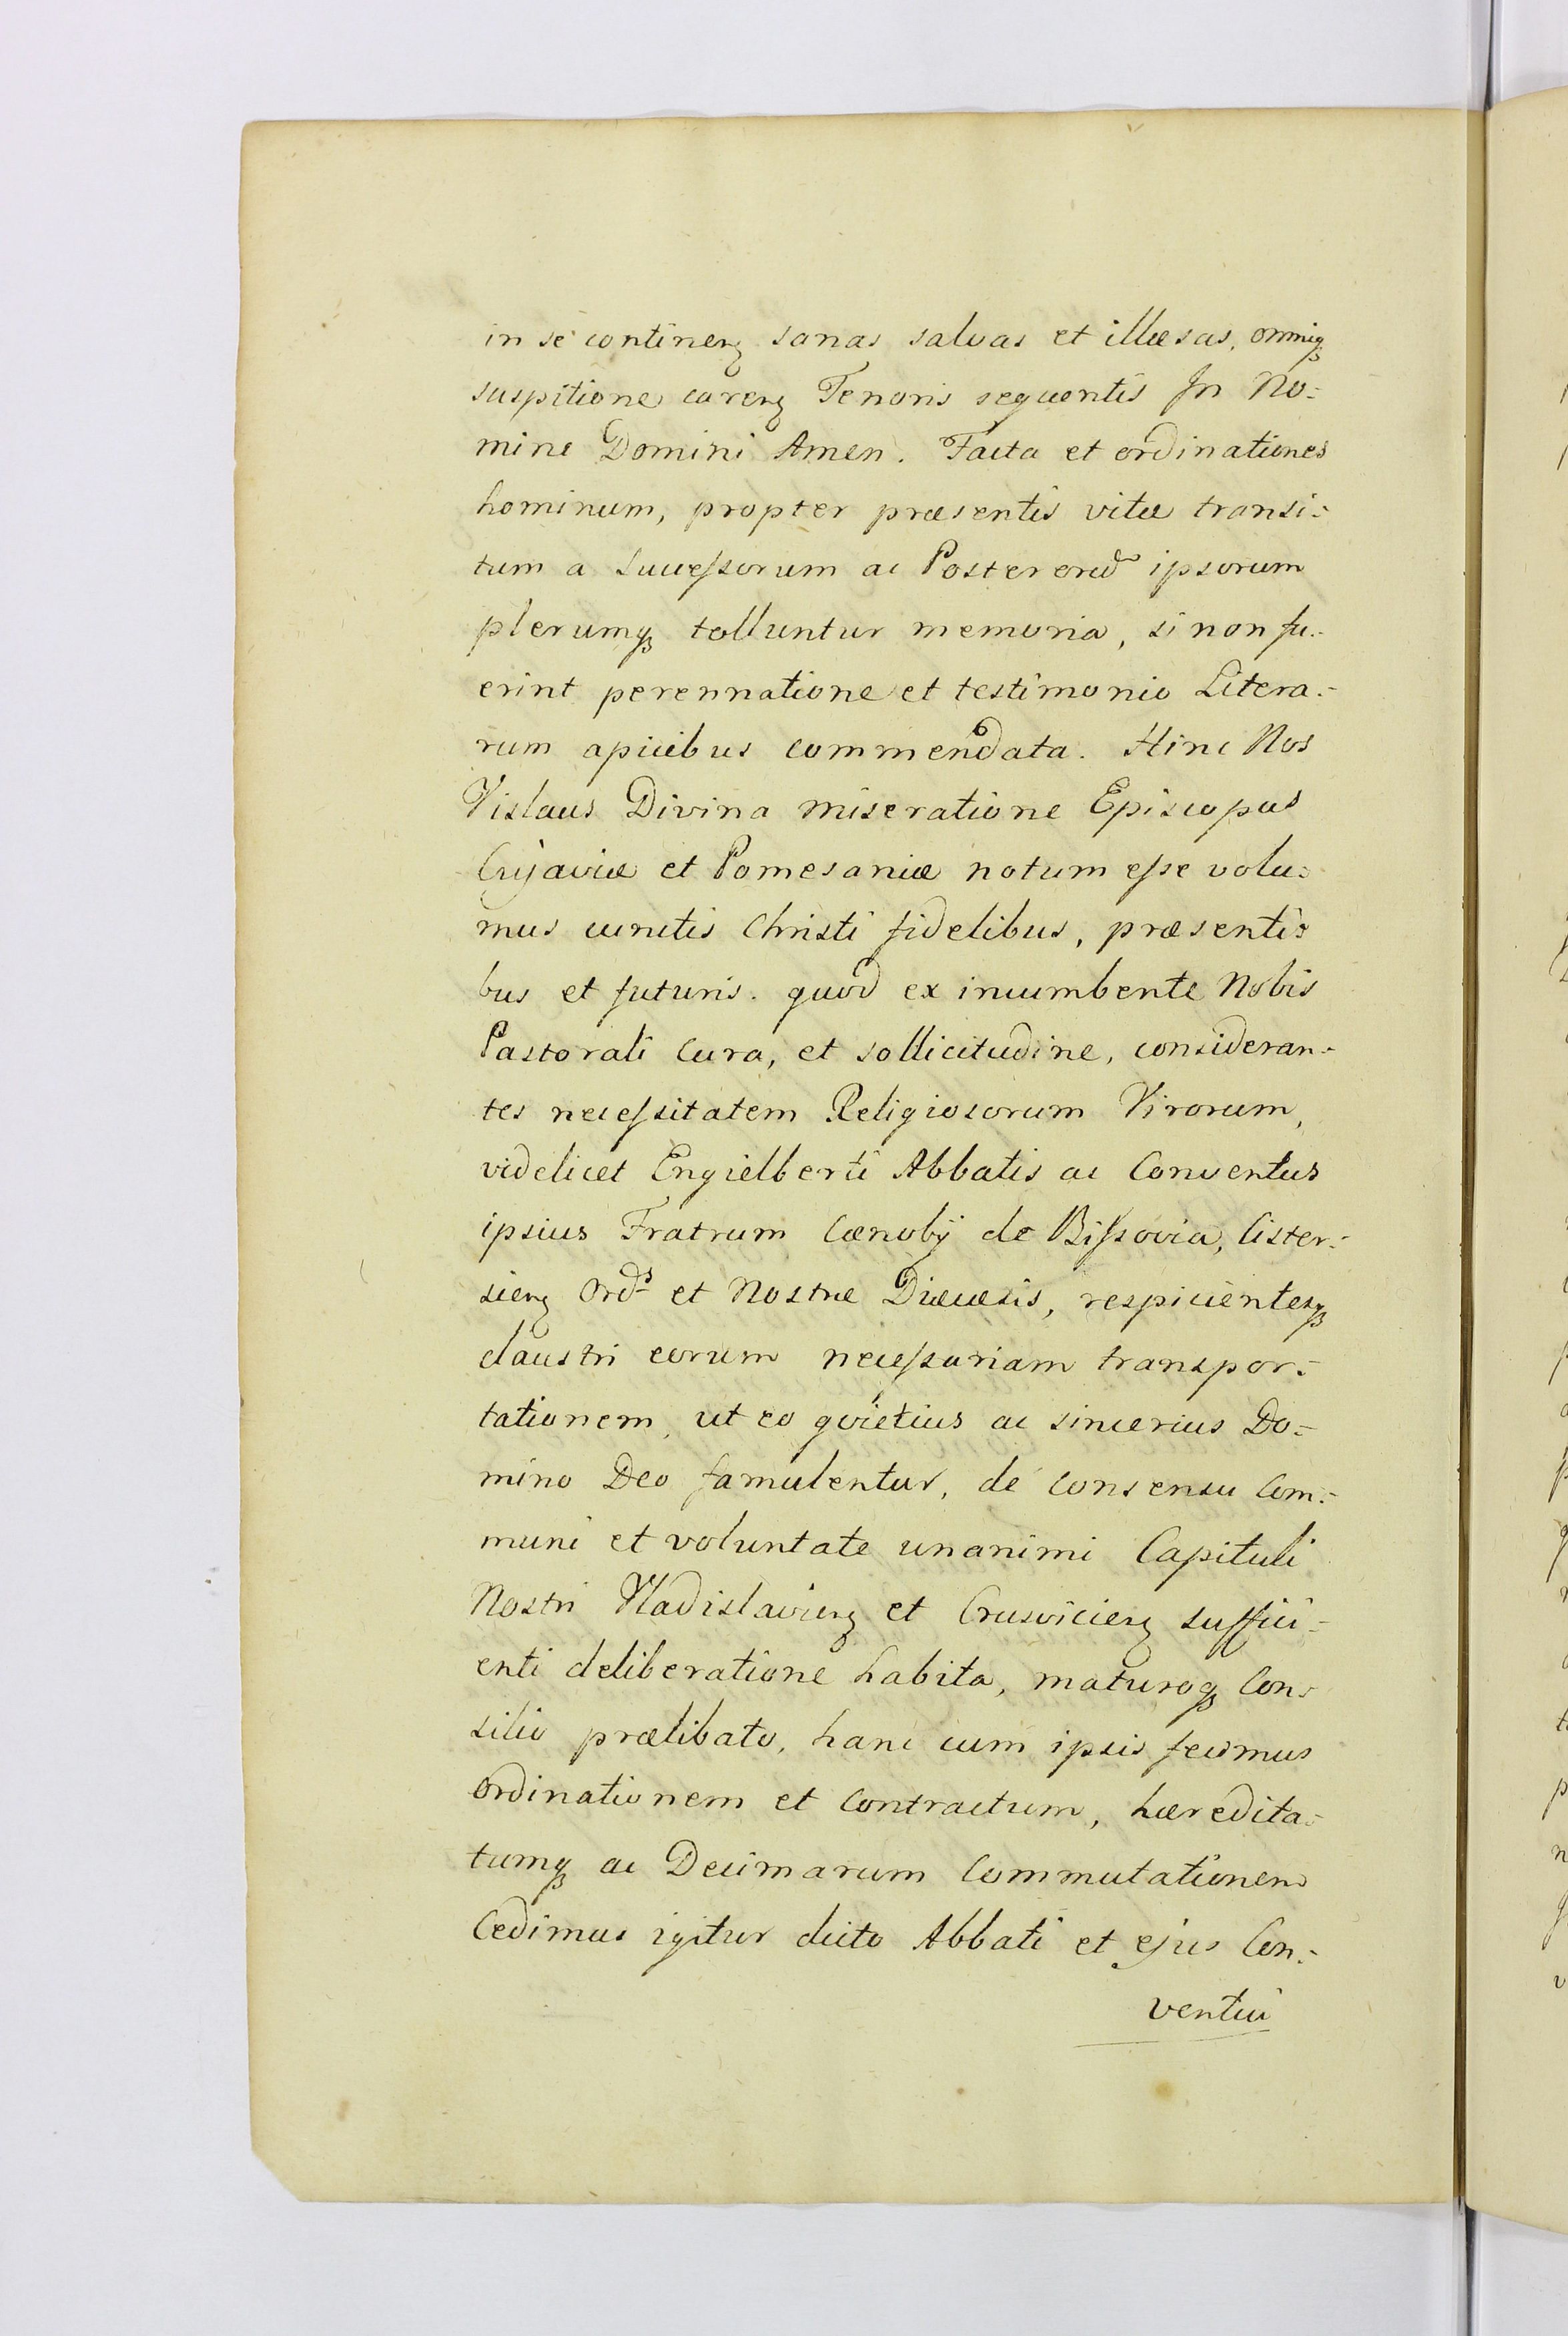 in se contineñ sanas salvas et illæsas, omniq́
suspitione careñ Tenoris sequentis In No-
mine Domini Amen. Facta et ordinationes
hominum, propter præsentis vitæ transi-
tum a Succeſsorum ac Posterorũ ipsorum
plerumqꝫ tolluntur memoria, si non fu-
erint perennatione et testimonio Litera-
rum apicibus commendata. Hinc Nos
Vislaus Divina miseratione Episcopus
Cujaviæ et Pomesaniæ notum eſse volu-
mus cunctis Christi fidelibus, præsenti-
bus et futuris. quod ex incumbente Nobis
Pastorali Cura, et sollicitudine, consideran-
tes neceſsitatem Religiosorum Virorum,
videlicet Engielberti Abbatis ac Conventus
ipsius Fratrum Cænobij de Biſsovia, Cister-
cieñ Ordˢ et Nostræ Diæcæsis, respicientesqꝫ
claustri eorum neceſsariam transpor-
tationem, ut eo qvietius ac sincerius Do-
mino Deo famulentur, de consensu Com-
muni et voluntate unanimi Capituli
Nostri Vladislavieñ et Crusvicieñ suffici-
enti deliberatione habita, maturoqꝫ Con-
silio prælibato, hanc cum ipsis fecimus
Ordinationem et Contractum, hæredita-
tumqꝫ ac Decimarum Commutationem
Cedimus igitur dicto Abbati et ejus Con-
ventui